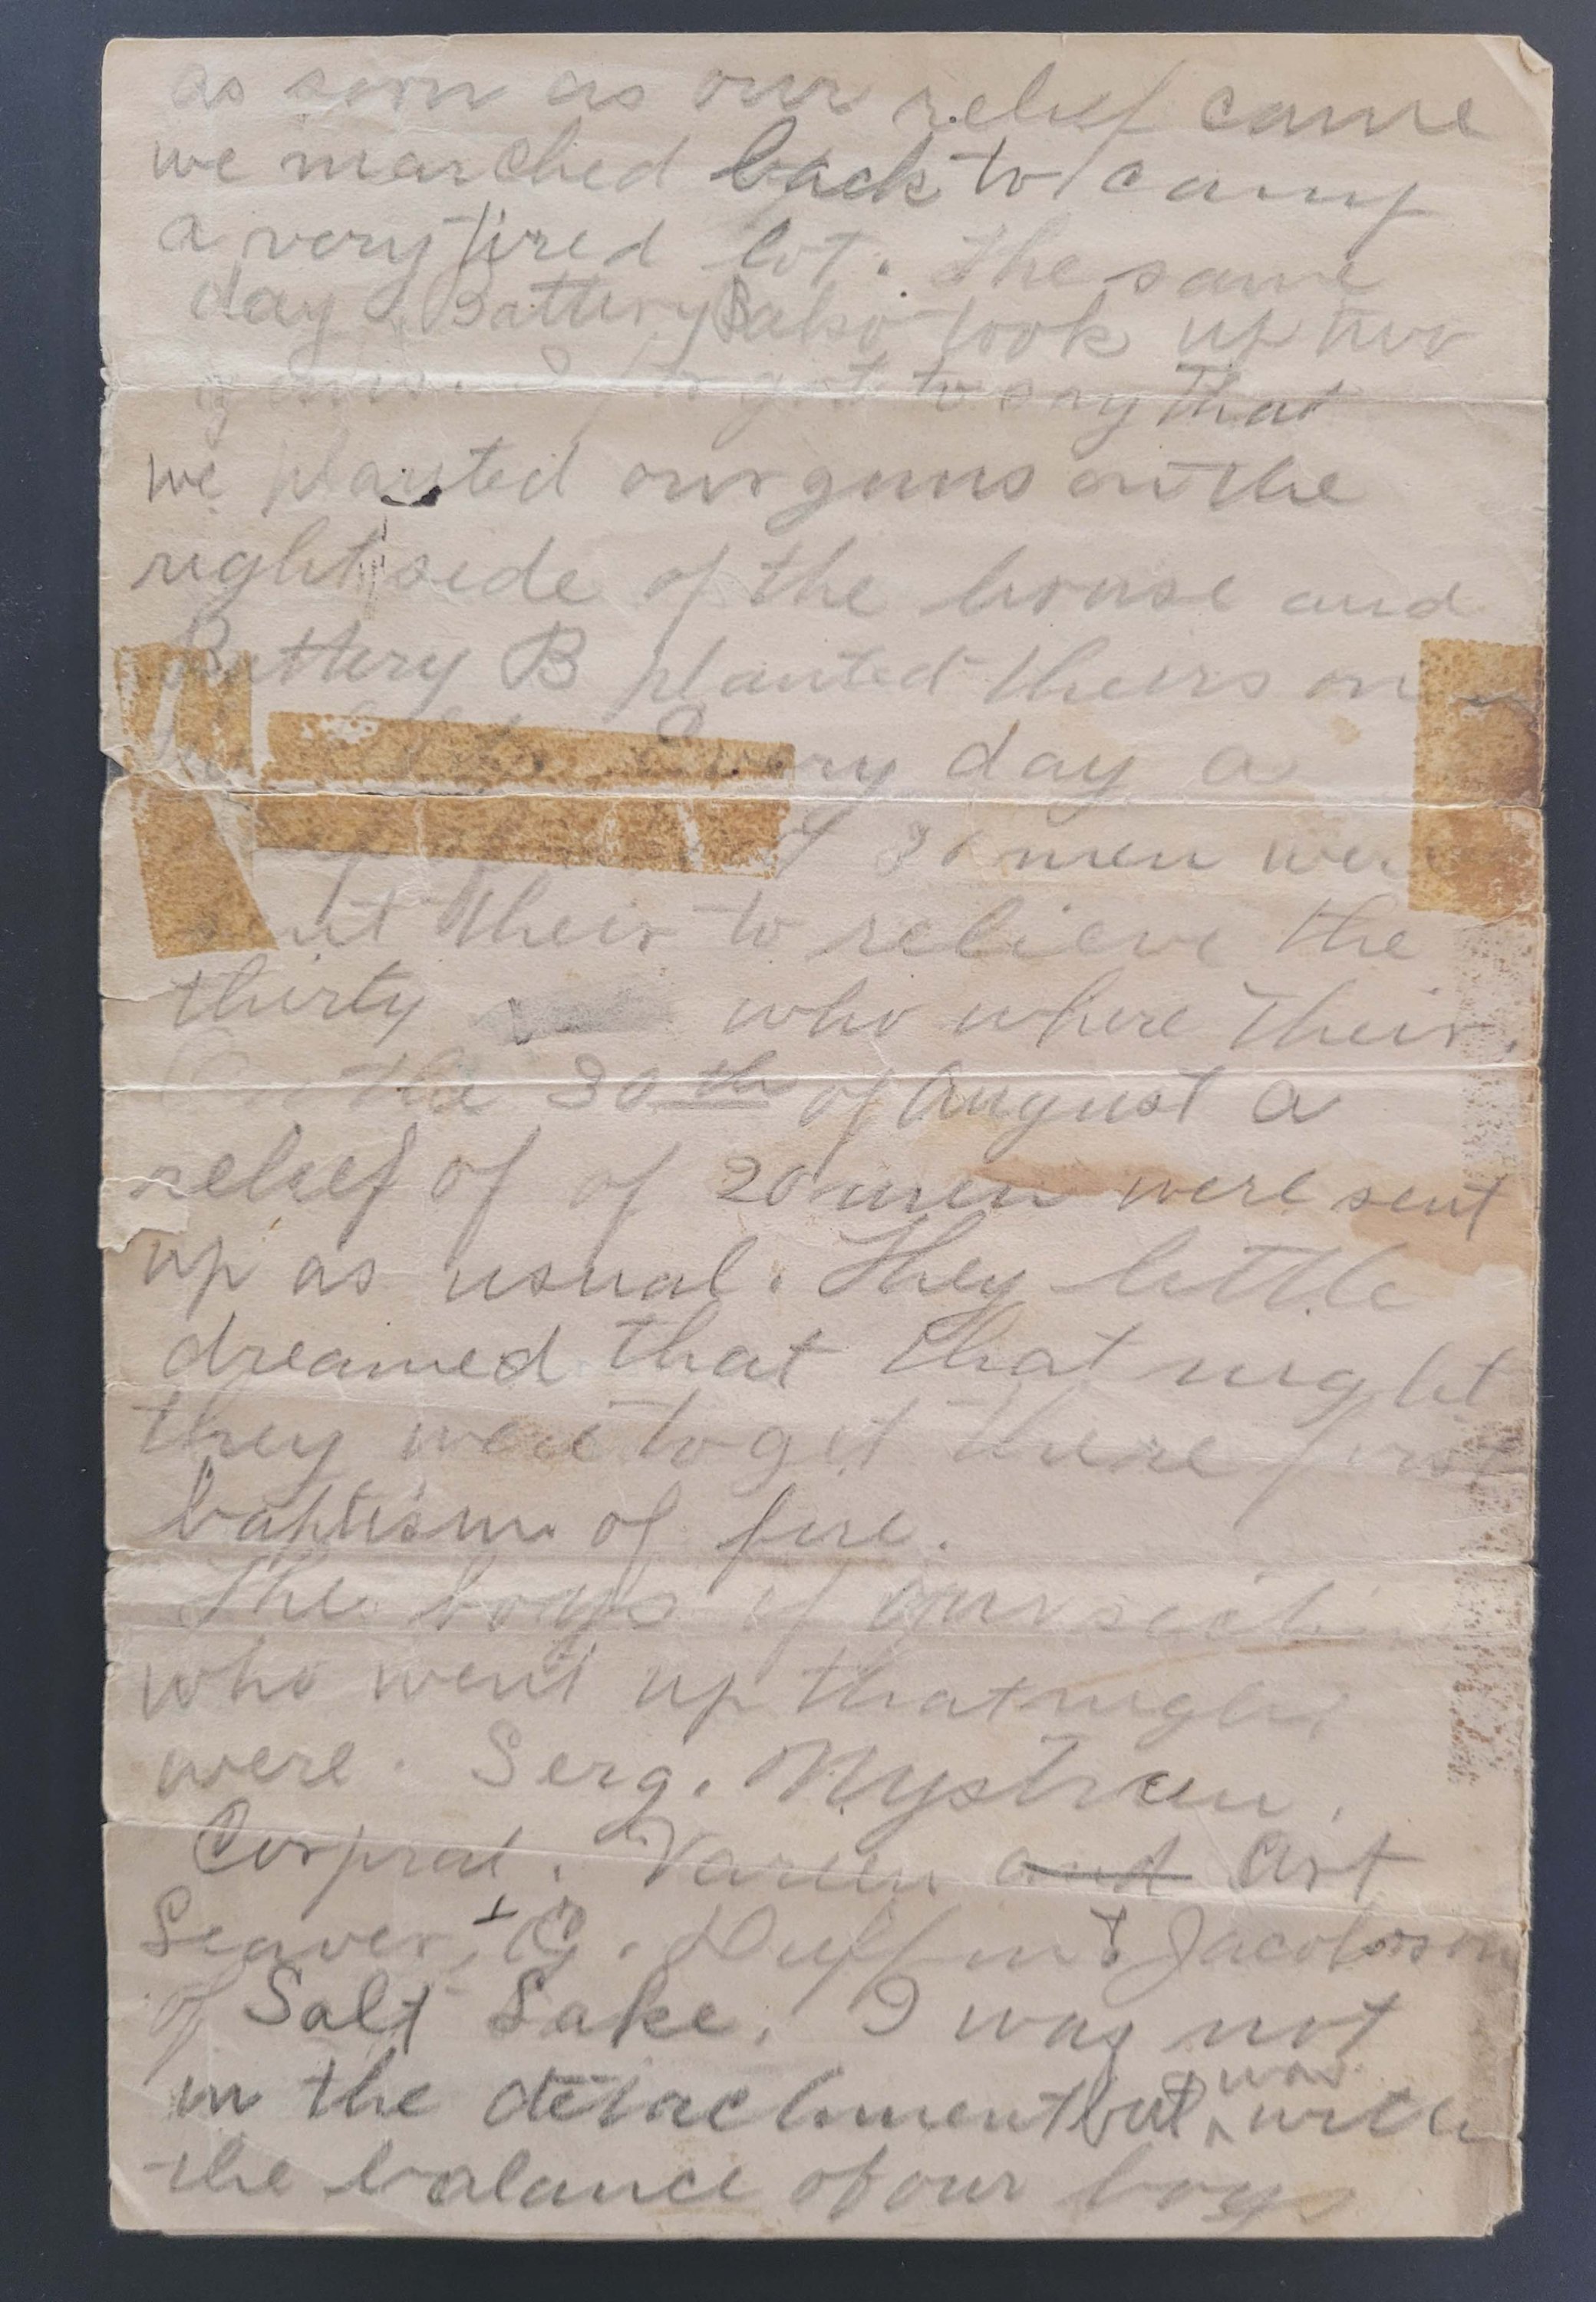 as soon as our relief came
we marched back to camp
a very tired lot. The same
day Battery B also took up two
guns. I forgot to say that
we planted our guns on the
right side of the house and
Battery B planted theirs on
Every day a
of 30 men were
sent their to relieve the
thirty who where their.
On the 30th of August a
relief of of 20 men were sent
up as usual. They little
dreamed that that night
they were to get there first
baptism of fire.
The boys of our
who went up that night
were. Serg. Nystrom.
Corpral. Varien and Art
Seaver, G. Duffin & Jacobson
of Salt Lake. I was not
in the detachment but was with
the balance of our boys